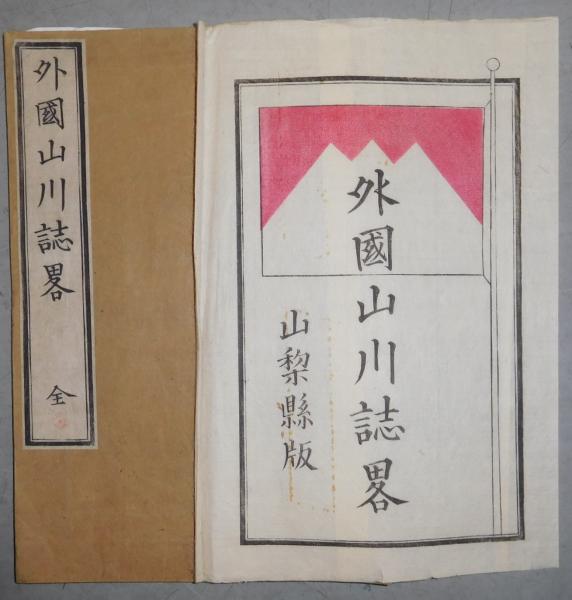 外國山川誌畧
山梨縣版
外國山川誌畧 全